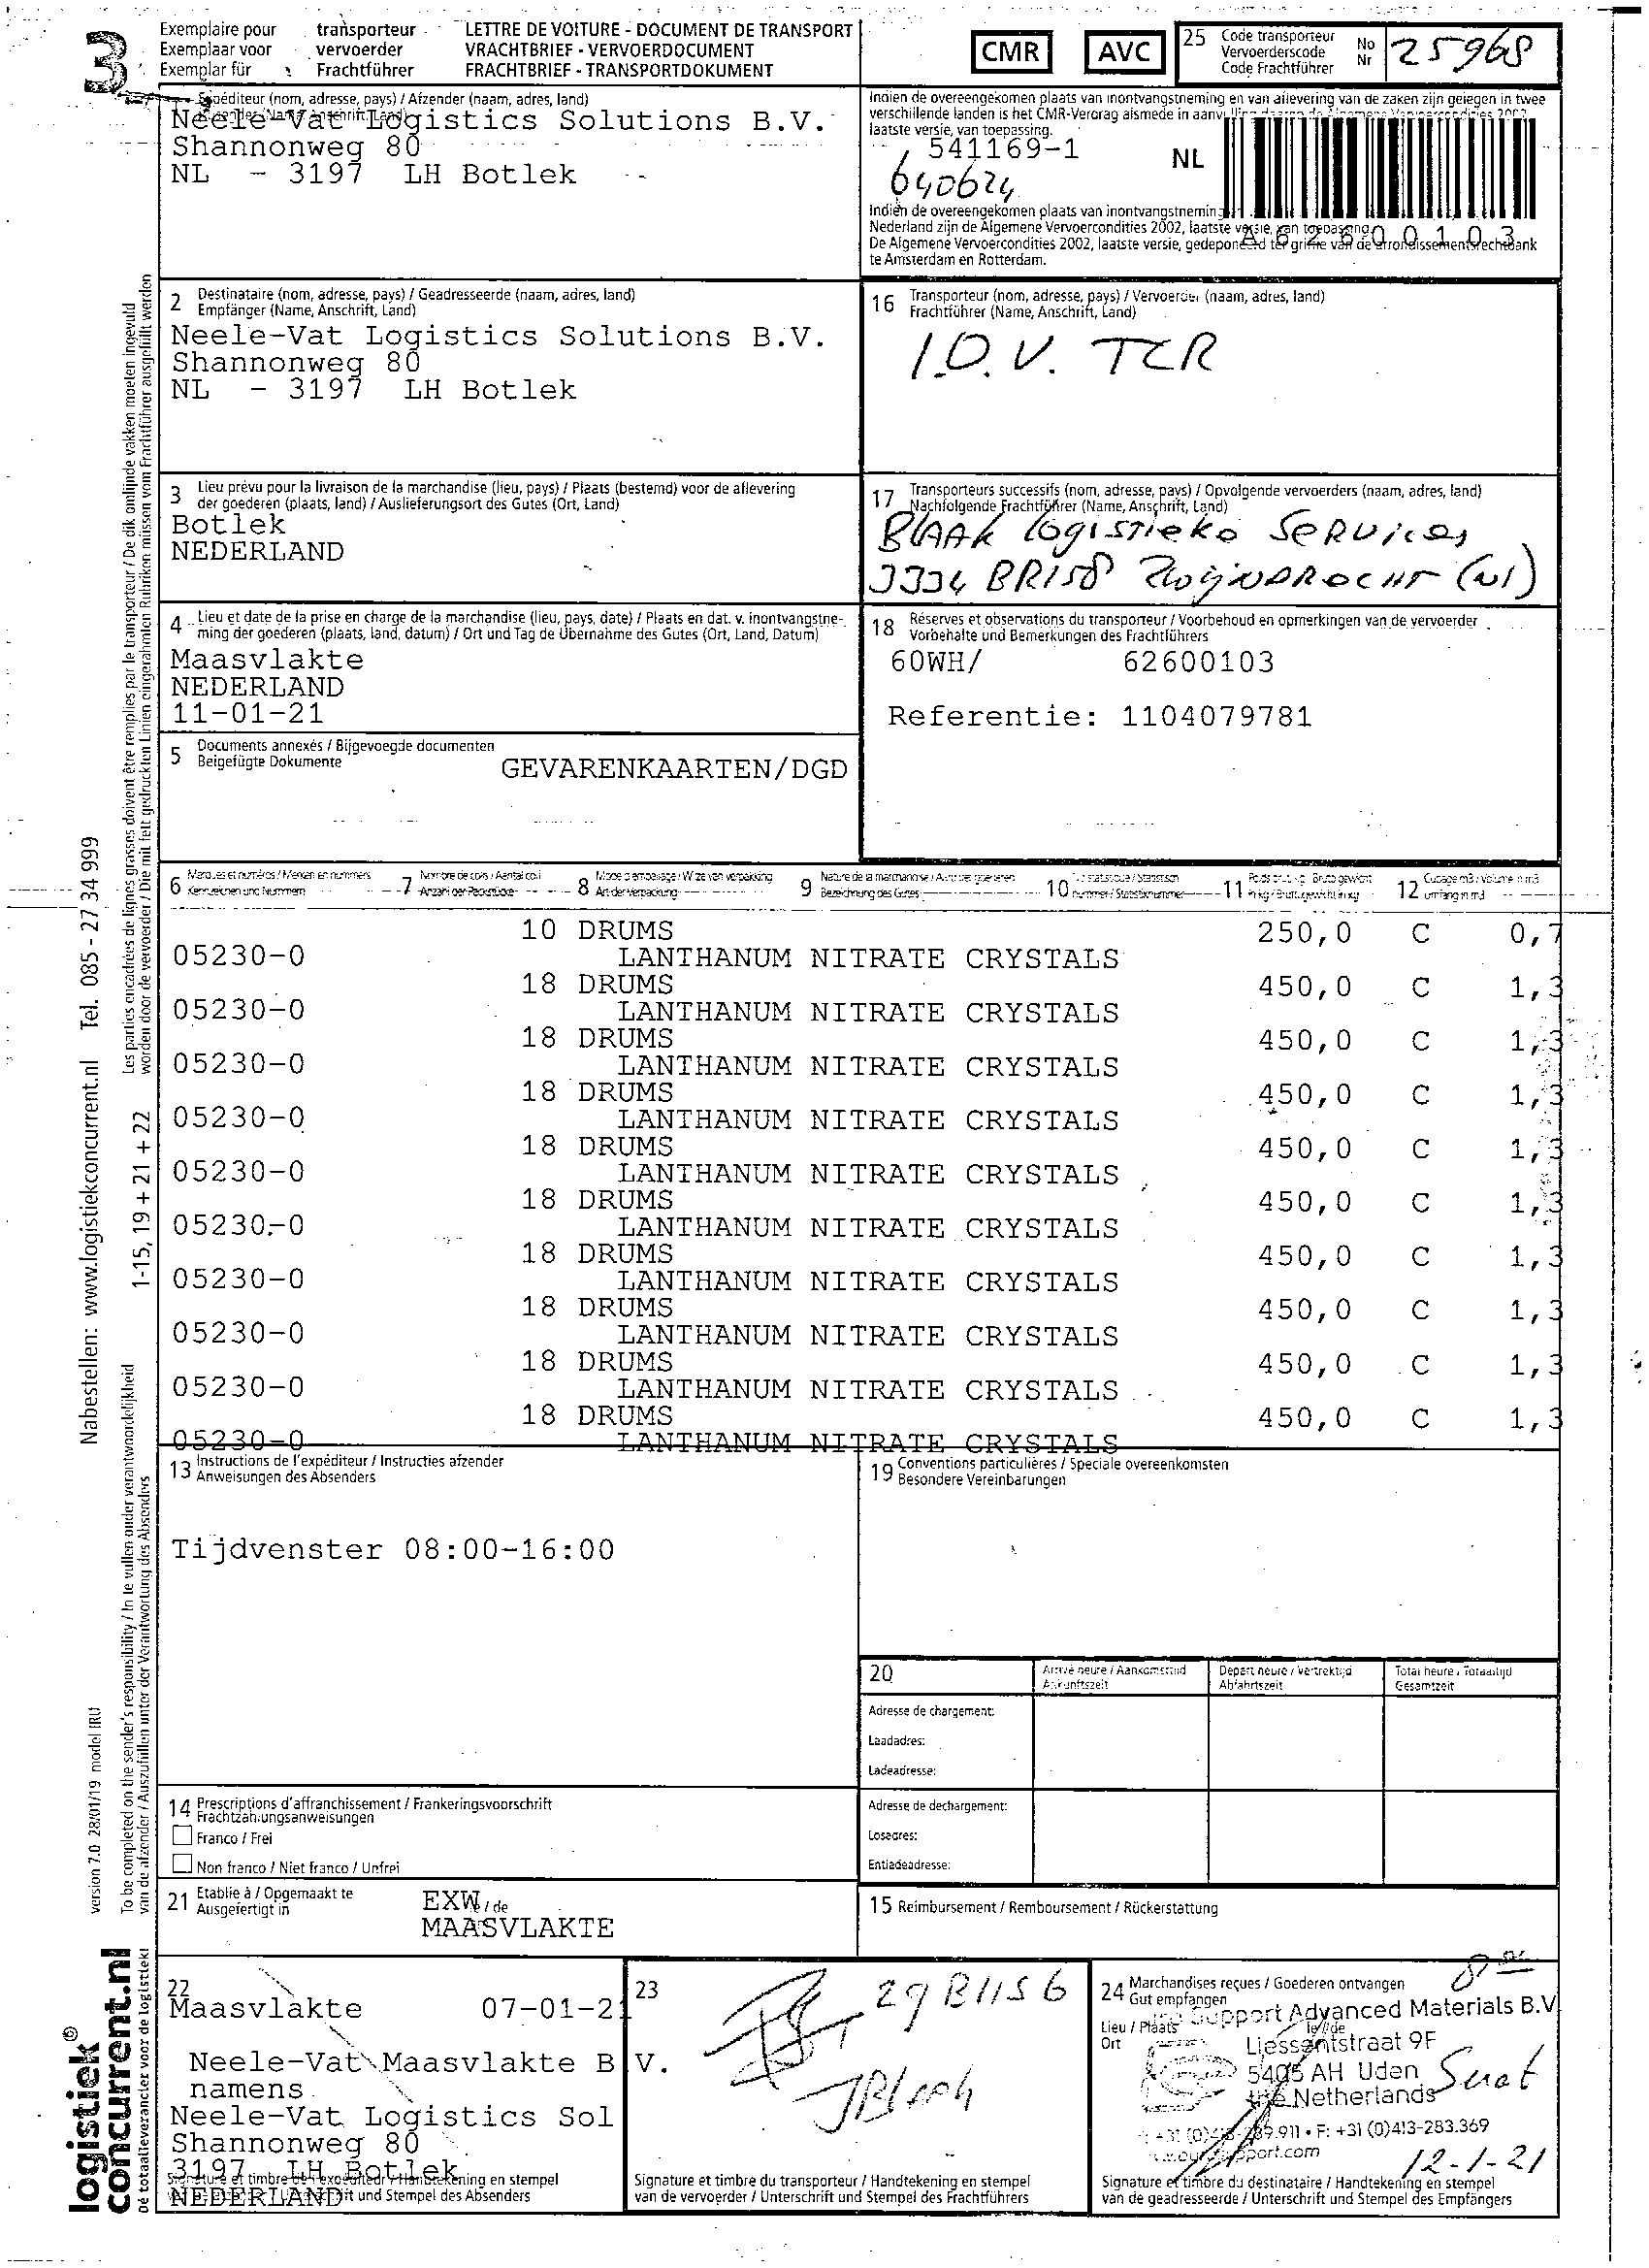 3
Exemplaire pour transporteur
Exemplaar voor vervoerder
Exemplar für Frachtführer
LETTRE DE VOITURE - DOCUMENT DE TRANSPORT
VRACHTBRIEF - VERVOERDOCUMENT
FRACHTBRIEF - TRANSPORTDOKUMENT
CMR AVC
25 Code transporteur
Vervoerderscode
Code Frachtführer
No
Nr
25968
Expéditeur (nom, adresse, pays) / Afzender (naam, adres, land)
Neele-Vat Logistics Solutions B.V.
Shannonweg 80
NL - 3197 LH Botlek
Indien de overeengekomen plaats van inontvangstneming en van aflevering van de zaken zijn gelegen in twee
verschillende landen is het CMR-Verdrag alsmede in
laatste versie, van toepassing.
541169-1
640624
NL
Indien de overeengekomen plaats van inontvangstneming
Nederland zijn de Algemene Vervoercondities 2002, laatste versie, van toepassing.
A62600103
De Algemene Vervoercondities 2002, laatste versie, gedeponeerd ter griffie van de Arrondissementsrechtbank
te Amsterdam en Rotterdam.
2 Destinataire (nom, adresse, pays) / Geadresseerde (naam, adres, land)
Empfänger (Name, Anschrift, Land)
Neele-Vat Logistics Solutions B.V.
Shannonweg 80
NL - 3197 LH Botlek
16 Transporteur (nom, adresse, pays) / Vervoerder (naam, adres, land)
Frachtführer (Name, Anschrift, Land)
I.O.V. TCR
3 Lieu prévu pour la livraison de la marchandise (lieu, pays) / Plaats (bestemd) voor de aflevering
der goederen (plaats, land) / Auslieferungsort des Gutes (Ort, Land)
Botlek
NEDERLAND
17 Transporteurs successifs (nom, adresse, pays) / Opvolgende vervoerders (naam, adres, land)
Nachfolgende Frachtführer (Name, Anschrift, Land)
BLAAK Logistieke Services
3334 BR158 Zwijndrecht (Nl)
4 Lieu et date de la prise en charge de la marchandise (lieu, pays, date) / Plaats en dat. v. inontvangstne-
ming der goederen (plaats, land, datum) / Ort und Tag de Übernahme des Gutes (Ort, Land, Datum)
Maasvlakte
NEDERLAND
11-01-21
18 Réserves et observations du transporteur / Voorbehoud en opmerkingen van de vervoerder
Vorbehalte und Bemerkungen des Frachtführers
60WH/ 62600103
Referentie: 1104079781
5 Documents annexés / Bijgevoegde documenten
Beigefügte Dokumente
GEVARENKAARTEN/DGD
6 Marques et numéros / Merken en nummers
Kennzeichen und Nummern
7 Nombre de colis / Aantal colli
Anzahl der Packstücke
8 Mode d'emballage / Wijze van verpakking
Art der Verpackung
9 Nature de la marchandise / Aard der goederen
Bezeichnung des Gutes
10
11
12
10 DRUMS 250,0 C 0,7
05230-0 LANTHANUM NITRATE CRYSTALS
18 DRUMS 450,0 C 1,3
05230-0 LANTHANUM NITRATE CRYSTALS
18 DRUMS 450,0 C 1,3
05230-0 LANTHANUM NITRATE CRYSTALS
18 DRUMS 450,0 C 1,3
05230-0 LANTHANUM NITRATE CRYSTALS
18 DRUMS 450,0 C 1,3
05230-0 LANTHANUM NITRATE CRYSTALS
18 DRUMS 450,0 C 1,3
05230-0 LANTHANUM NITRATE CRYSTALS
18 DRUMS 450,0 C 1,3
05230-0 LANTHANUM NITRATE CRYSTALS
18 DRUMS 450,0 C 1,3
05230-0 LANTHANUM NITRATE CRYSTALS
18 DRUMS 450,0 C 1,3
05230-0 LANTHANUM NITRATE CRYSTALS
18 DRUMS 450,0 C 1,3
05230-0 LANTHANUM NITRATE CRYSTALS
13 Instructions de l'expéditeur / Instructies afzender
Anweisungen des Absenders
Tijdvenster 08:00-16:00
19 Conventions particulières / Speciale overeenkomsten
Besondere Vereinbarungen
20
Arrivé heure / Aankomsttijd
Ankunftszeit
Depart heure / Vertrektijd
Abfahrtszeit
Total heure / Totaaltijd
Gesamtzeit
Adresse de chargement:
Laadadres:
Ladeadresse:
Adresse de dechargement:
Losadres:
Entladeadresse:
14 Prescriptions d'affranchissement / Frankeringsvoorschrift
Frachtzahlungsanweisungen
Franco / Frei
Non franco / Niet franco / Unfrei
21 Etablie à / Opgemaakt te
Ausgefertigt in
EXW
le/de
MAASVLAKTE
15 Reimbursement / Remboursement / Rückerstattung
22
Maasvlakte 07-01-21
Neele-Vat Maasvlakte B.V.
namens
Neele-Vat Logistics Sol
Shannonweg 80
3197 LH Botlek
NEDERLAND
und Stempel des Absenders
23
29BHS6
Signature et timbre du transporteur / Handtekening en stempel
van de vervoerder / Unterschrift und Stempel des Frachtführers
24 Marchandises reçues / Goederen ontvangen
Gut empfangen
Lieu / Plaats
Ort
le/de
Support Advanced Materials B.V
Liessentstraat 9F
5405 AH Uden
the Netherlands
F: +31 (0)413-283.369
12-1-21
Signature et timbre du destinataire / Handtekening en stempel
van de geadresseerde / Unterschrift und Stempel des Empfängers
Les parties encadrées de lignes grasses doivent être remplies par le transporteur / De dik omlijnde vakken moeten ingevuld
worden door de vervoerder / Die mit fett gedruckten Linien eingerahmten Rubriken müssen vom Frachtführer ausgefüllt werden
1-15, 19 + 21 + 22
To be completed on the sender's responsibility / In te vullen onder verantwoordelijkheid
van de afzender / Auszufüllen unter der Verantwortung des Absenders
Nabestellen: www.logistiekconcurrent.nl Tel. 085 - 27 34 999
version 7.0 28/01/19 model IRU
logistiek©
concurrent.nl
Dé totaalleverancier voor de logistiek!